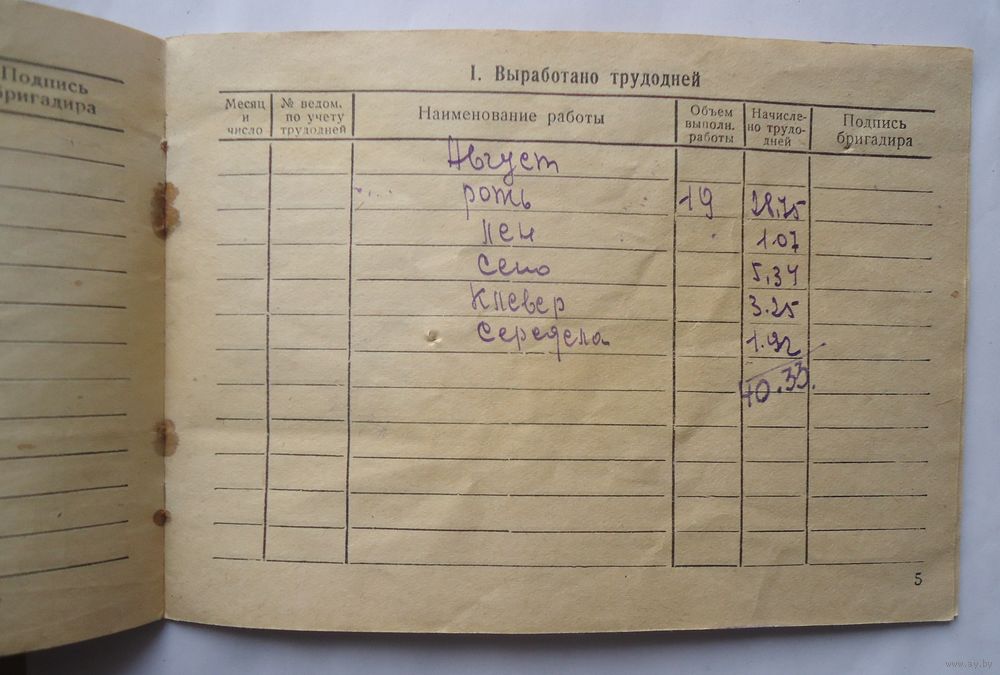 Подпись
бригадира
I. Выработано трудодней
Месяц и число
№ ведом. по учету трудодней
Наименование работы
Объем выполн. работы
Начисле-но трудо-дней
Подпись бригадира
Август
рожь 19 28.75
лен 1.07
сено 5,34
клевер 3.25
Середела 1.92
40.33.
5
www.ay.by